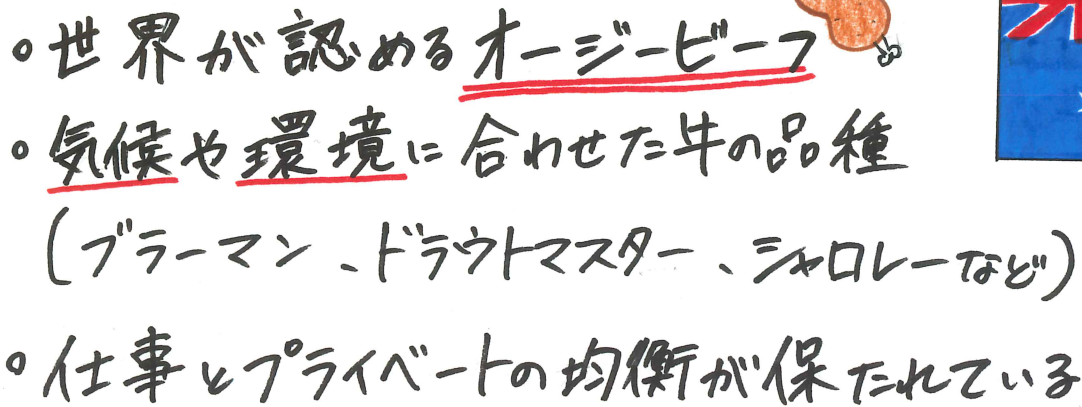 。世界が認めるオージービーフ
。気候や環境に合わせた牛の品種
(ブラーマン、ドラウトマスター、シャロレーなど)
。仕事とプライベートの均衡が保たれている